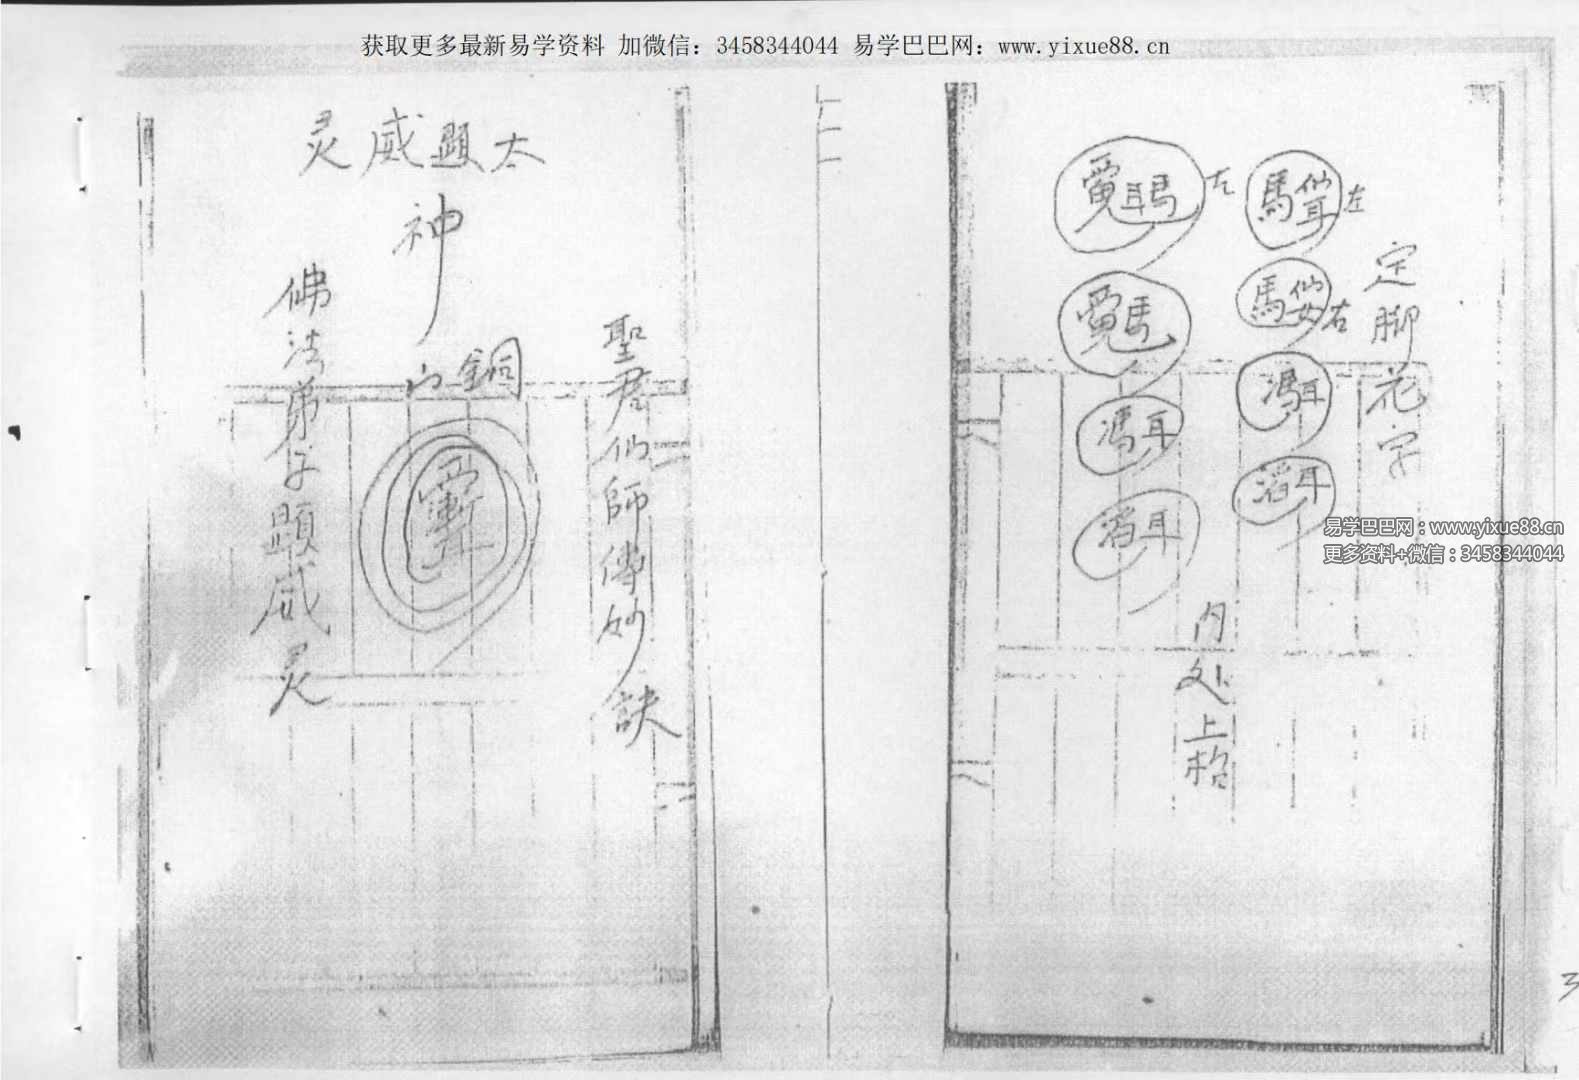 获取更多最新易学资料 加微信：3458344044 易学巴巴网：www.yixue88.cn
定脚花字
左
右
左
馮耳
滔耳
馮耳
滔耳
内处上枱
太顕威灵
神
銅山
聖君仙師傳妙訣
佛法弟子顕威灵
易学巴巴网：www.yixue88.cn
更多资料+微信：3458344044
3